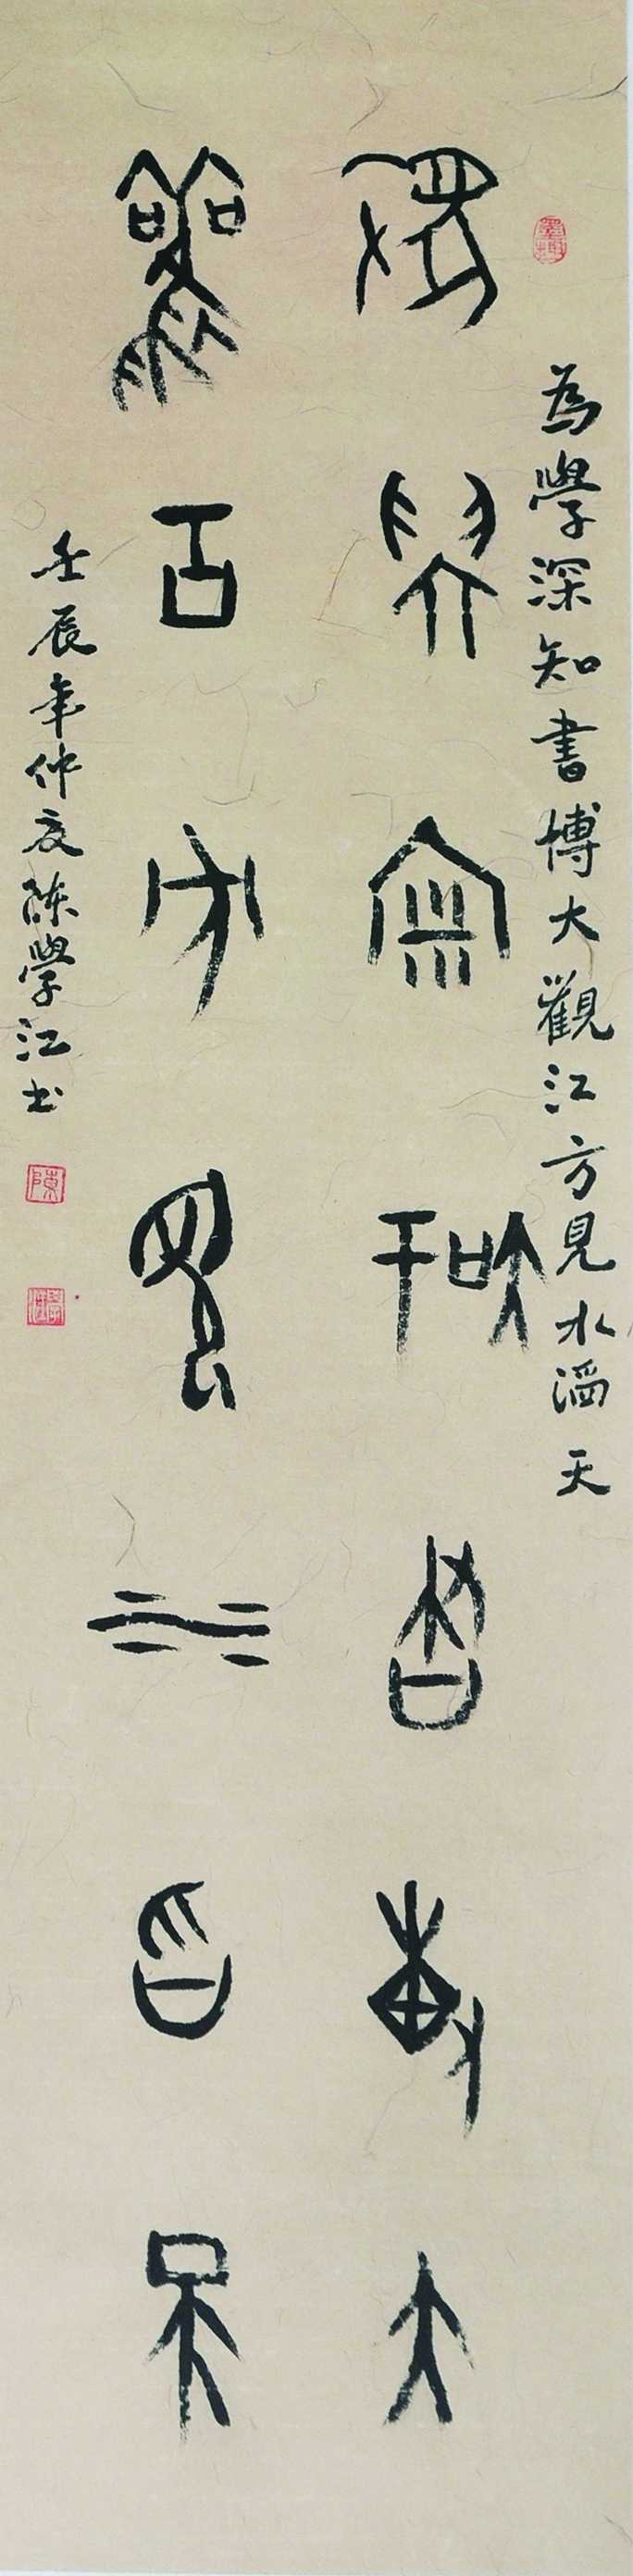 為學深知書博大觀江方見水滔天
為學深知書博大
觀江方見水滔天
壬辰年仲夏陈學江书
陳
學江